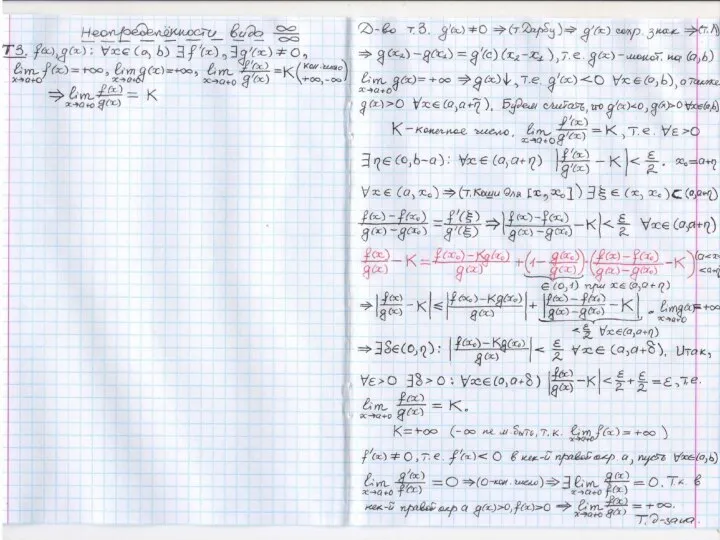 Неопределённости вида ∞/∞
Т3. f(x), g(x): ∀x∈(a, b) ∃f'(x), ∃g'(x) ≠ 0,
lim_{x→a+0} f(x) = +∞, lim_{x→a+0} g(x) = +∞, lim_{x→a+0} f'(x)/g'(x) = K (кон. число, +∞, -∞)
⇒ lim_{x→a+0} f(x)/g(x) = K
Д-во т.3. g'(x) ≠ 0 ⇒ (т. Дарбу) ⇒ g'(x) сохр. знак ⇒ (т. Л)
⇒ g(x₂) - g(x₁) = g'(c)(x₂ - x₁), т.е. g(x) - монот. на (a, b)
lim_{x→a+0} g(x) = +∞ ⇒ g(x)↓, т.е. g'(x) < 0 ∀x∈(a, b), а также
g(x) > 0 ∀x∈(a, a+η). Будем считать, что g'(x)<0, g(x)>0 ∀x∈(a,b)
K - конечное число. lim_{x→a+0} f'(x)/g'(x) = K, т.е. ∀ε>0
∃η∈(0, b-a): ∀x∈(a, a+η) |f'(x)/g'(x) - K| < ε/2. x₀ = a+η
∀x∈(a, x₀) ⇒ (т. Коши для [x, x₀]) ∃ξ∈(x, x₀) ⊂ (a, a+η)
(f(x) - f(x₀))/(g(x) - g(x₀)) = f'(ξ)/g'(ξ) ⇒ |(f(x) - f(x₀))/(g(x) - g(x₀)) - K| < ε/2 ∀x∈(a, a+η)
f(x)/g(x) - K = (f(x₀) - Kg(x₀))/g(x) + (1 - g(x₀)/g(x))·((f(x) - f(x₀))/(g(x) - g(x₀)) - K)
∈(0,1) при x∈(a, a+η)
⇒ |f(x)/g(x) - K| ≤ |(f(x₀) - Kg(x₀))/g(x)| + |(f(x) - f(x₀))/(g(x) - g(x₀)) - K|. lim_{x→a+0} g(x) = +∞
< ε/2 ∀x∈(a, a+η)
⇒ ∃δ∈(0, η): |(f(x₀) - Kg(x₀))/g(x)| < ε/2 ∀x∈(a, a+δ). Итак,
∀ε>0 ∃δ>0: ∀x∈(a, a+δ) |f(x)/g(x) - K| < ε/2 + ε/2 = ε, т.е.
lim_{x→a+0} f(x)/g(x) = K.
K = +∞ (-∞ не м. быть, т.к. lim_{x→a+0} f(x) = +∞)
f'(x) ≠ 0, т.е. f'(x) < 0 в нек-й правой окр. a, пусть ∀x∈(a, b)
lim_{x→a+0} g'(x)/f'(x) = 0 ⇒ (0 - кон. число) ⇒ ∃ lim_{x→a+0} g(x)/f(x) = 0. Т.к. в
нек-й правой окр a g(x)>0, f(x)>0 ⇒ lim_{x→a+0} f(x)/g(x) = +∞.
Т. д-зана.